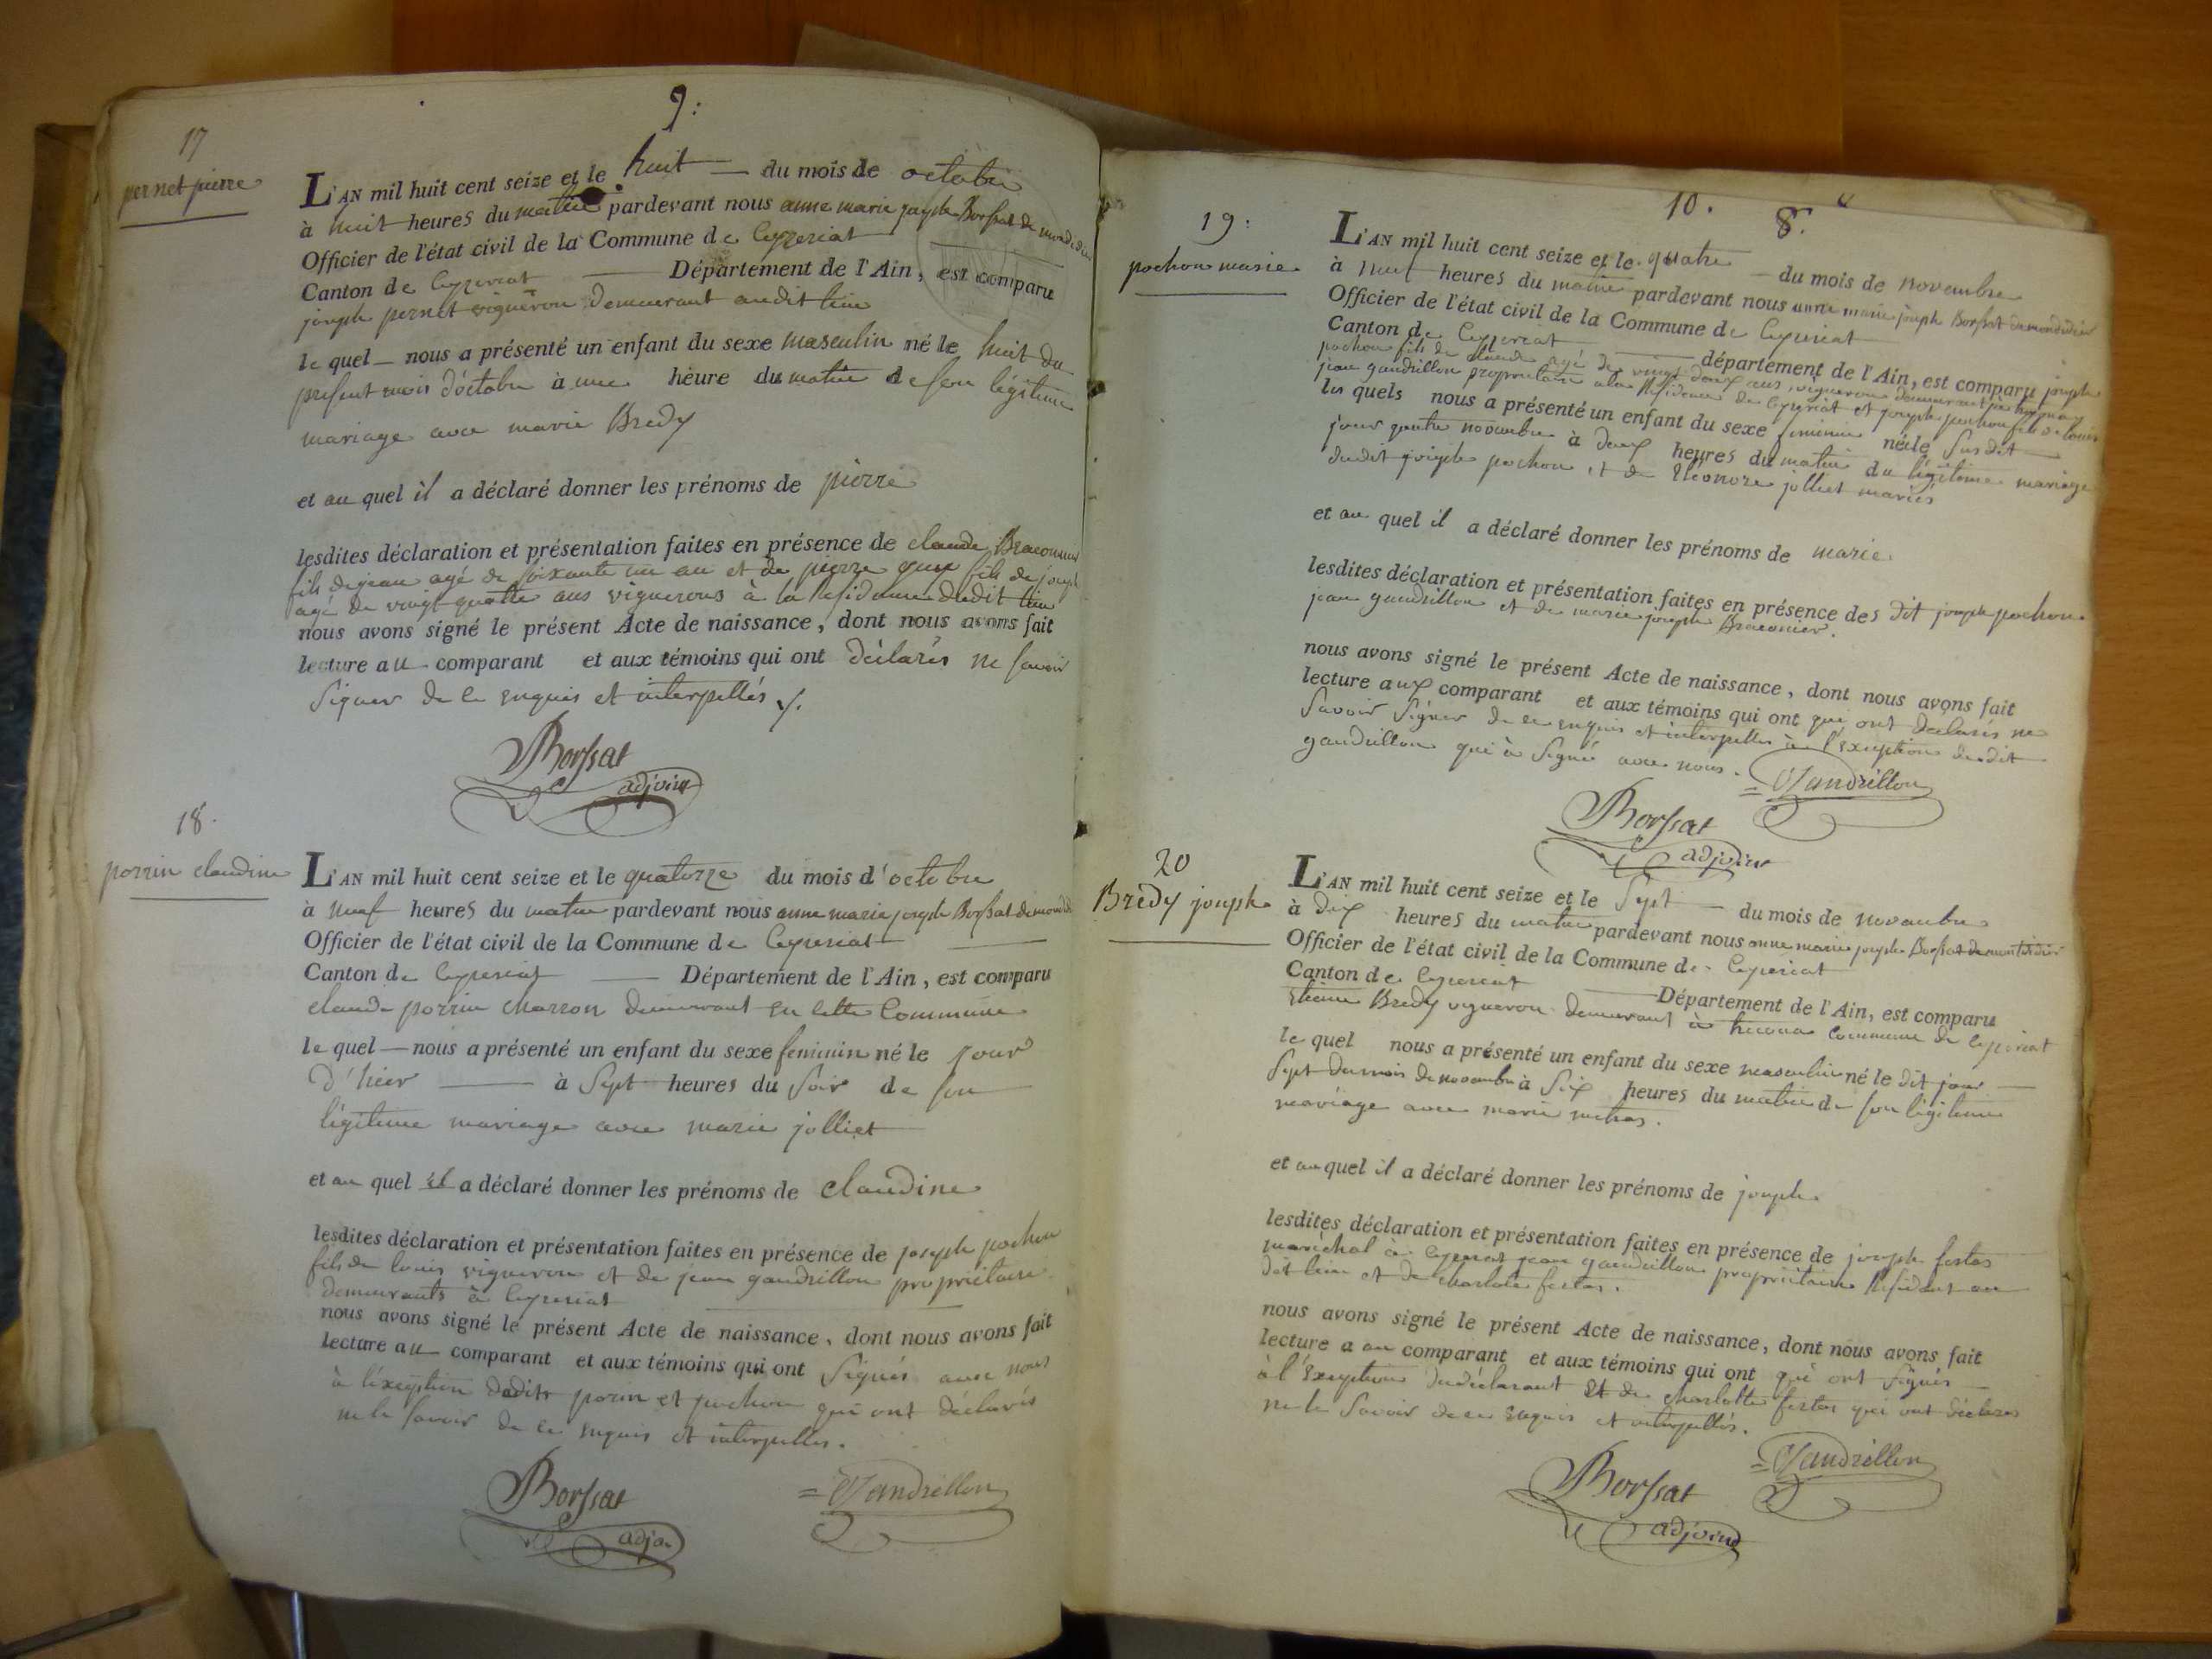 9:
17
pernet pierre
L'AN mil huit cent seize et le huit du mois de octobre
à huit heures du matin pardevant nous anne marie joseph Borssat de mondidier
Officier de l'état civil de la Commune de Ceyzeriat
Canton de Ceyzeriat Département de l'Ain, est comparu
joseph pernet vigneron demeurant audit lieu
le quel nous a présenté un enfant du sexe masculin né le huit du
present mois d'octobre à une heure du matin de son légitime
mariage avec marie Bredy
et au quel il a déclaré donner les prénoms de pierre
lesdites déclaration et présentation faites en présence de claude Braconnier
fils de jean agé de soixante un an et de pierre fils de joseph
agé de vingt quatre ans vignerons à la Residance dudit lieu
nous avons signé le présent Acte de naissance, dont nous avons fait
lecture au comparant et aux témoins qui ont déclarés ne savoir
signer de ce enquis et interpellés ./.
Borssat
adjoint
18.
porrin claudine
L'AN mil huit cent seize et le quatorze du mois d'octobre
à neuf heures du matin pardevant nous anne marie joseph Borssat de mondidier
Officier de l'état civil de la Commune de Ceyzeriat
Canton de Ceyzeriat Département de l'Ain, est comparu
claude porrin charron demeurant en cette Commune
le quel nous a présenté un enfant du sexe feminin né le jour
d'hier à sept heures du soir de son
légitime mariage avec marie jolliet
et au quel il a déclaré donner les prénoms de claudine
lesdites déclaration et présentation faites en présence de joseph pochon
fils de louis vigneron et de jean gandrillon propriétaire
demeurants à Ceyzeriat
nous avons signé le présent Acte de naissance, dont nous avons fait
lecture au comparant et aux témoins qui ont signés avec nous
à l'éxception dedits porrin et pochon qui ont déclarés
ne le savoir de ce enquis et interpellés.
Borssat
adjo.
Gandrillon
10.
8.
19:
pochon marie
L'AN mil huit cent seize et le quatre du mois de novembre
à heures du matin pardevant nous anne marie joseph Borssat de mondidier
Officier de l'état civil de la Commune de Ceyzeriat
Canton de Ceyzeriat département de l'Ain, est comparu joseph
pochon fils de claude agé de vingt deux ans, vigneron demeurant
jean gandrillon propriétaire a la Residence de Ceyzeriat et joseph pochon fils de louis
les quels nous a présenté un enfant du sexe feminin né le susdit
jour quatre novembre à deux heures du matin du légitime mariage
dudit joseph pochon et de Eléonore jolliet mariés
et au quel il a déclaré donner les prénoms de marie
lesdites déclaration et présentation faites en présence des dit joseph pochon
jean gandrillon et de marie joseph Braconier.
nous avons signé le présent Acte de naissance, dont nous avons fait
lecture aux comparant et aux témoins qui ont qui ont déclarés ne
savoir signer de ce enquis et interpellés à l'éxception dudit
gandrillon qui à signé avec nous.
Gandrillon
Borssat
adjoint
20
Bredy joseph
L'AN mil huit cent seize et le sept du mois de novembre
à dix heures du matin pardevant nous anne marie joseph Borssat de mondidier
Officier de l'état civil de la Commune de Ceyzeriat
Canton de Ceyzeriat Département de l'Ain, est comparu
Etienne Bredy vigneron demeurant à commune de Ceyzeriat
le quel nous a présenté un enfant du sexe masculin né le dit jour
sept du mois de novembre à six heures du matin de son légitime
mariage avec marie
et au quel il a déclaré donner les prénoms de joseph
lesdites déclaration et présentation faites en présence de joseph festas
maréchal à Ceyzeriat jean gandrillon propriétaire Résidant au
dit lieu et de charlotte festas.
nous avons signé le présent Acte de naissance, dont nous avons fait
lecture a au comparant et aux témoins qui ont qui ont signés
à l'éxception du déclarant et de charlotte festas qui ont déclarés
ne le savoir de ce enquis et interpellés.
Gandrillon
Borssat
adjoint